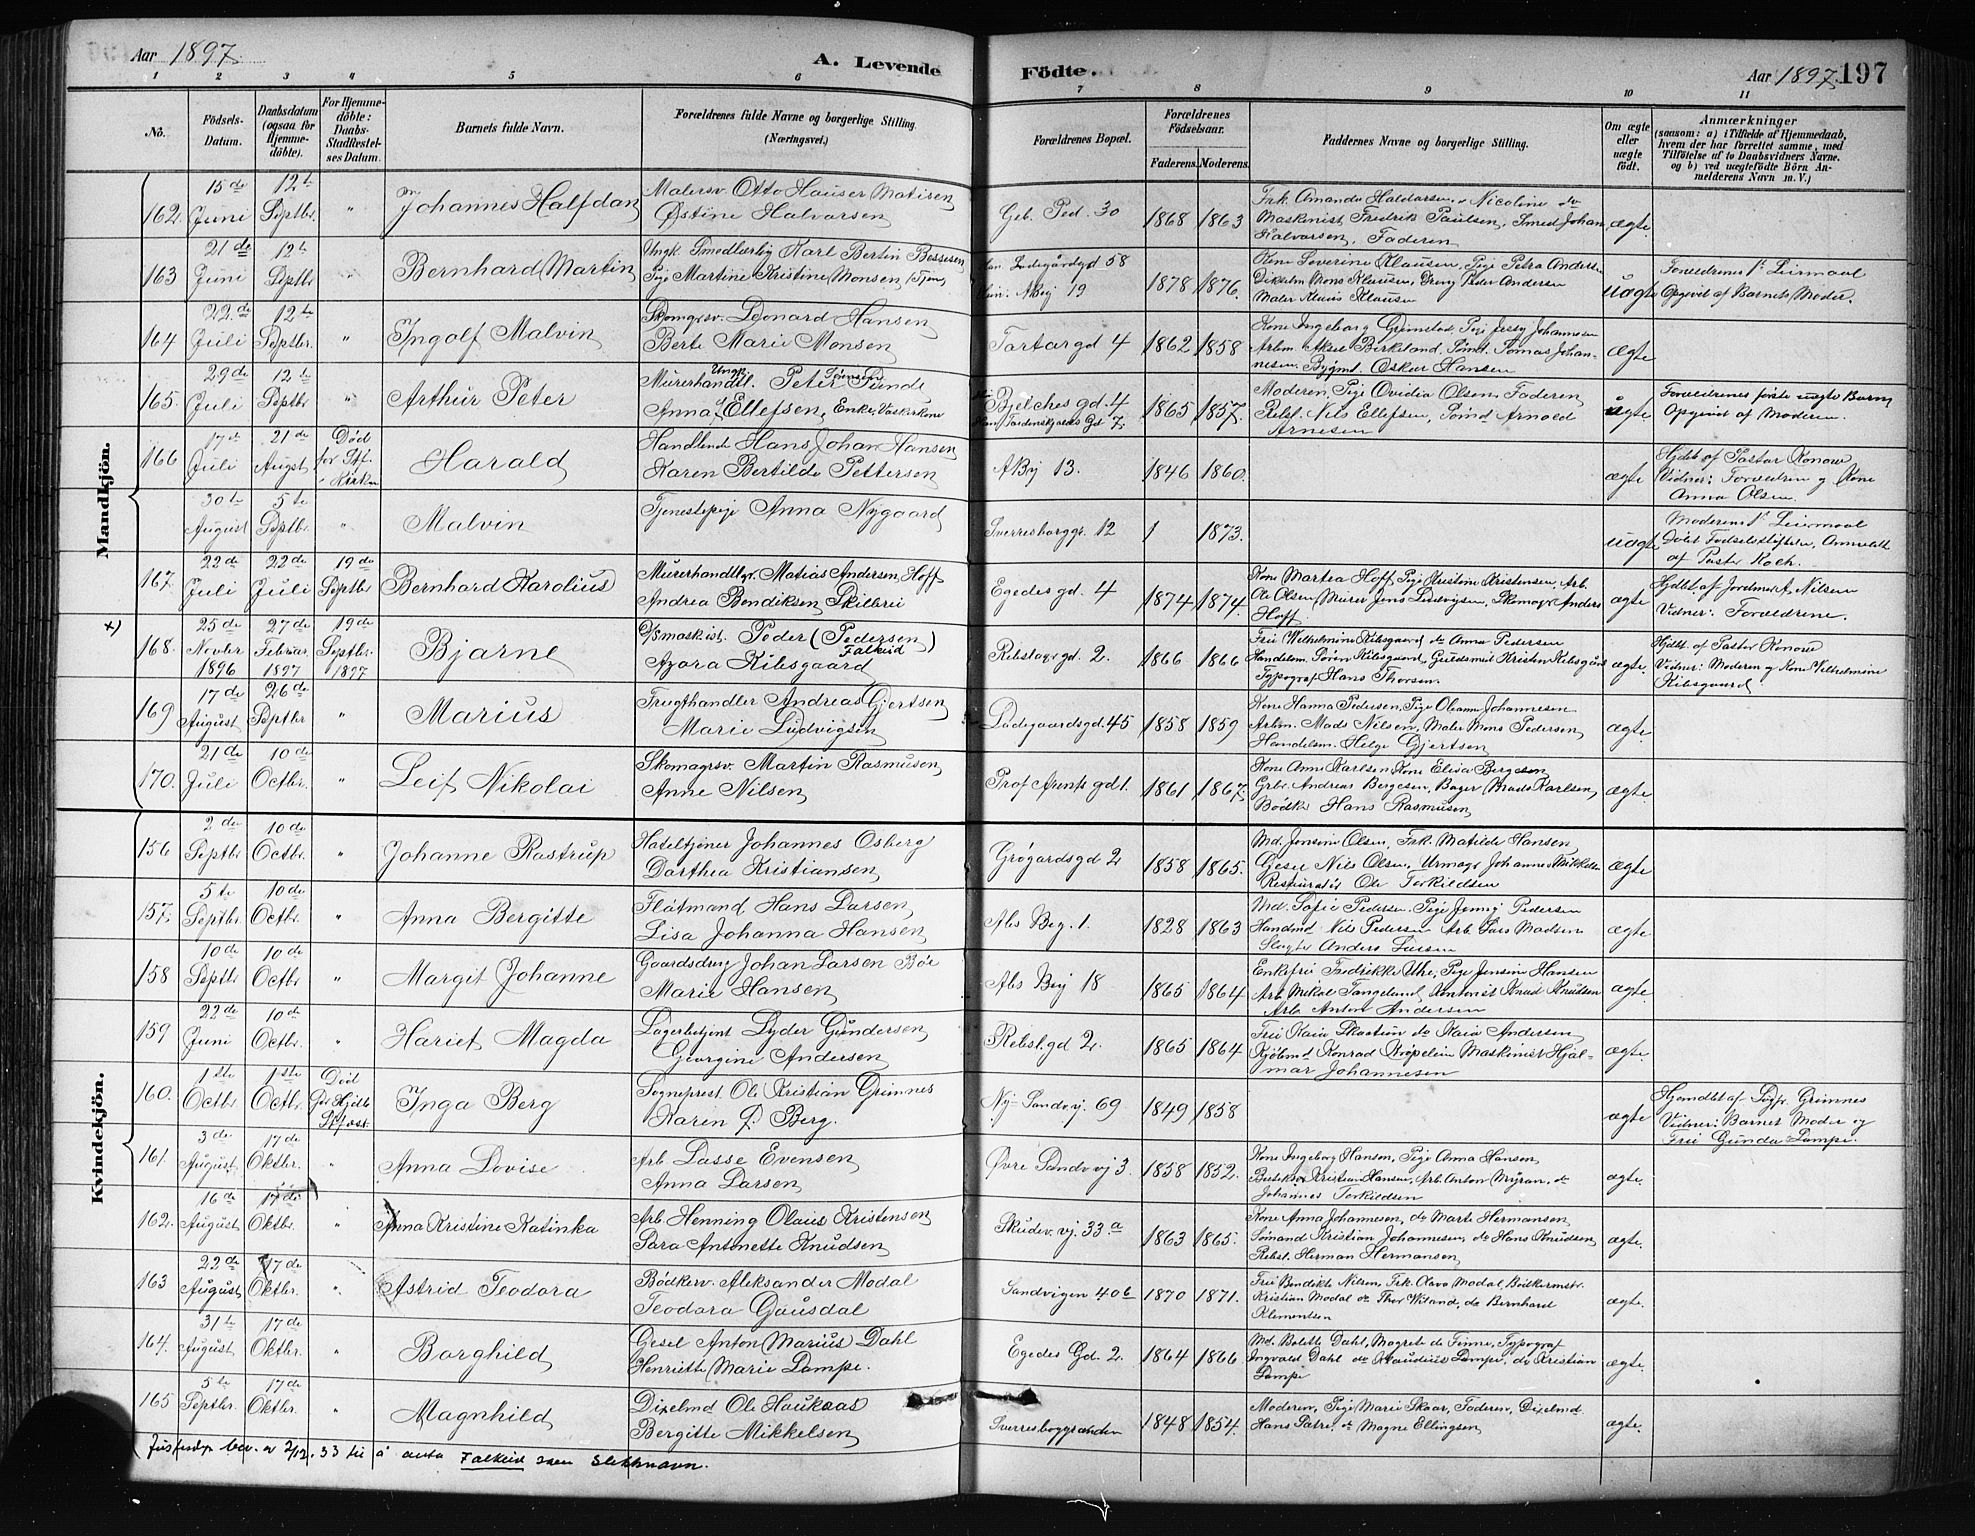 Aar 1897.
A. Levende Födte.
Aar 1897. 197
1 2 3 4 5 6 7 8 9 10 11
No.
Födsels-Datum.
Daabsdatum (ogsaa for Hjemme-döbte).
For Hjemme-döbte: Daabs-Stadfæstel-ses Datum.
Barnets fulde Navn.
Forældrenes fulde Navne og borgerlige Stilling. (Næringsvei.)
Forældrenes Bopæl.
Forældrenes Födselsaar.
Faderens. Moderens.
Faddernes Navne og borgerlige Stilling.
Om ægte eller uægte födt.
Anmærkninger
(saasom: a) i Tilfælde af Hjemmedaab, hvem der har forrettet samme, med Tilföielse af to Daabsvidners Navne, og b) ved uægtefödte Börn An-melderens Navn m. V.)
Mandkjön.
162. 15de Juni 12te Septbr. " Johannes Halfdan Malersv. Otto Hauser Matisen Østine Halvorsen Geb. Ped. 30 1868 1863 Frk. Amanda Haldorsen, Nicoline do Maskinist Fredrik Paulsen, Smed Johan Halvorsen, Faderen ægte.
163 21de Juni 12te Septbr " Bernhard Martin Ungk. Smedlærly Karl Bertin Bessesen Pige Martine Kristine Monsen (Tjen) Han. Ladegårdgd 58 Hun. ABej 19 1878 1876. Kone Severine Klausen, Pige Petra Andersen Dikselm Mons Klausen, Dreng Peder Andersen Maler Klaus Klausen uægte Forældrenes 1ste Leiermaal Opgivet af Barnets Moder.
164 22de Juli 12te Septbr. " Ingolf Malvin Skomgrsv. Leonard Hansen Berte Marie Monsen Tartargd 4 1862 1858 Kone Ingeborg Grimstad, Pige Jessy Johannesen Arbm Aksel Birkeland, Sømd. Tomas Johan-nesen. Bygmt. Oskar Hansen Ægte
165. 29de Juli 12te Septbr. " Arthur Peter Murerhandtl. Ungk. Peter Tørnes Sunde Anna Ellefsen, Enke, Vaskekone Bjelches gd. 4 Han Tordenskjolds Gd 7. 1865 1857. Moderen, Pige Ovidia Olsen, Faderen Rebsl. Nils Ellefsen, Sømd Arnold Arnesen uægte. Forældrenes første uægte Barn Opgivet af Moderen.
166 17de Juli 21de Augst Død før Stf. i Kirken Harald Handlende Hans Johan Hansen Karen Bertilde Pettersen ABej 13. 1846 1860. ægte Hjdbt. af Pastor Konow Vidner: Forældren og Kone Anna Olsen.
30te August 5te Septbr. " Malvin Tjenestepige Anna Nygaard Sverresborggt. 12 1 1873. uægte Moderens 1ste Leiermaal Født Fødselsstiftelsen, Anmeldt af Pastor Koch.
167. 22de Juli 22de Juli 19de Septbr Bernhard Karolius Murerhandtlgr. Matias Andersen Hoff Andrea Bendiksen Skilbrei Egedes gd. 4 1874 1874. Kone Martea Hoff, Pige Kristine Kristensen, Arb. Ole Olsen, Murer Jens Ludvigsen, Skomagr Anders Hoff. ægte Hjdbt. af Jordmor A. Nilsen Vidner: Forældrene.
x)
168. 25de Novbr 1896 27de Februar 1897 19de Septbr. 1897 Bjarne D/Smaskist. Peder (Pedersen) Falkeid Azora Kibsgaard Rebslagr gd. 2. 1866 1866 Frue Wilhelmine Kibsgaard do Anna Pedersen Handelsm. Søren Kibsgaard, Guldsmit Kristen Kibsgård Typograf Hans Thorsen. ægte. Hjdbt. af Pastor Konow Vidner: Moderen og Kone Vilhelmine Kibsgaard.
169 17de August 26de Septbr " Marius Frugthandler Andreas Gjertsen Marie Ludvigsen Ladegaardsgd. 45 1858 1859 Kone Hanna Pedersen, Pige Oleanna Johannesen Arbm. Mads Nilsen, Maler Mons Pedersen Handelsm. Helge Gjertsen ægte.
170. 21de Juli 10de Octbr. " Leif Nikolai Skomagrsv. Martin Rasmusen Anne Nilsen Prof Arents gd 1. 1861 1867. Kone Anne Karlsen, Kone Elisa Bergesen Grbr. Andreas Bergesen, Bager Mads Karlsen, Bødkr Hans Rasmusen ægte.
Kvindekjön.
156 2de Septbr 10de Octbr. " Johanne Rastrup Hoteltjener Johannes Osberg Dorthea Kristiansen Grøgaardsgd 2 1858 1865. Md. Jensine Olsen, Frk. Matilde Hansen Gesel Nils Olsen, Urmagr Johannes Mikkels. Restauratør Ole Torkildsen ægte
157. 5te Septbr 10de Octbr. " Anna Bergitte Flåtmand Hans Larsen Lisa Johanna Hansen Abs Beg. 1. 1828 1863 Md. Sofie Pedersen, Pige Jenny Pedersen Handmd Nils Pedersen Arb. Lars Madsen Slagter Anders Larsen ægte.
158 10de Septbr 10de Octbr. " Margit Johanne Gaardsdreng Johan Larsen Bøe Marie Hansen Abs Bej 18 1865 1864 Enkefrue Fredrikke Uhe, Pige Jensine Hansen Arb. Mikal Tangeland, Kontorist Knud Knudsen Arb. Anton Andersen ægte.
159 22de Juni 10de Octbr. " Hariet Magda Lagerbetjent Lyder Gundersen Georgine Andersen Rebsl.gd 2. 1865 1864 Frue Kaia Skartum do Kaia Andersen Kjøbmd Konrad Krøpelien Maskinist Hjal-mar Johannesen ægte.
160. 1ste Octbr 1ste Octbr. Død Inga Berg Sogneprest Ole Kristian Grimnes Karen J. Berg. Ny-Sandvj. 69 1849 1858 ægte Hjemdbt af Sogpr. Grimnes Vidner: Barnets Moder og Frue Gunda Lampe.
161. 3de August 17de Oktbr. " Anna Lovise Arb. Lasse Evensen Anna Larsen Øvre Sandv vj 3. 1858 1852. Kone Ingeborg Hansen, Pige Anna Hansen Kristian Hansen, Arb. Anton Myran, do Johannes Torkildsen ægte.
162. 16de August 17de Oktbr. " Anna Kristine Katinka Arb Henning Olaus Kristensen Sara Antonette Knudsen Skudev. vj. 33.a 1863 1865. Kone Anna Johannesen, do Marte Hermansen Sømand Kristian Johannesen, do Hans Knudsen, Rebsl. Herman Hermansen ægte.
163 22de August 17de Oktbr. " Astrid Teodora Bødkerv. Aleksander Modal Teodora Gausdal Sandvigen 40b 1870 1871. Frue Bendikte Nilsen, Frk. Olava Modal, Bødkermstr. Kristian Modal do Thor Witland, do Bernhard Klementsen ægte.
164. 31te August 17de Oktbr. " Borghild Gesel Anton Marius Dahl Henriette Marie Lampe. Egedes Gd. 2. 1864 1866 Md. Bolette Dahl, Magrete de Fine, Typograf Ingvald Dahl do Klaudius Lampe, do Kristian Lampe ægte.
165 5te Septbr. 17de Oktbr. " Magnhild Dixelmd Ole Haukaas Bergitte Mikkelsen Sverresborggsanden 1848 1854. Moderen, Pige Marie Skaar, Faderen, Dixelmd Hans Satre, do Magne Ellingsen ægte.
(Justisdep bev. av 2/12.33 til å anta Falkeid som slektsnavn.